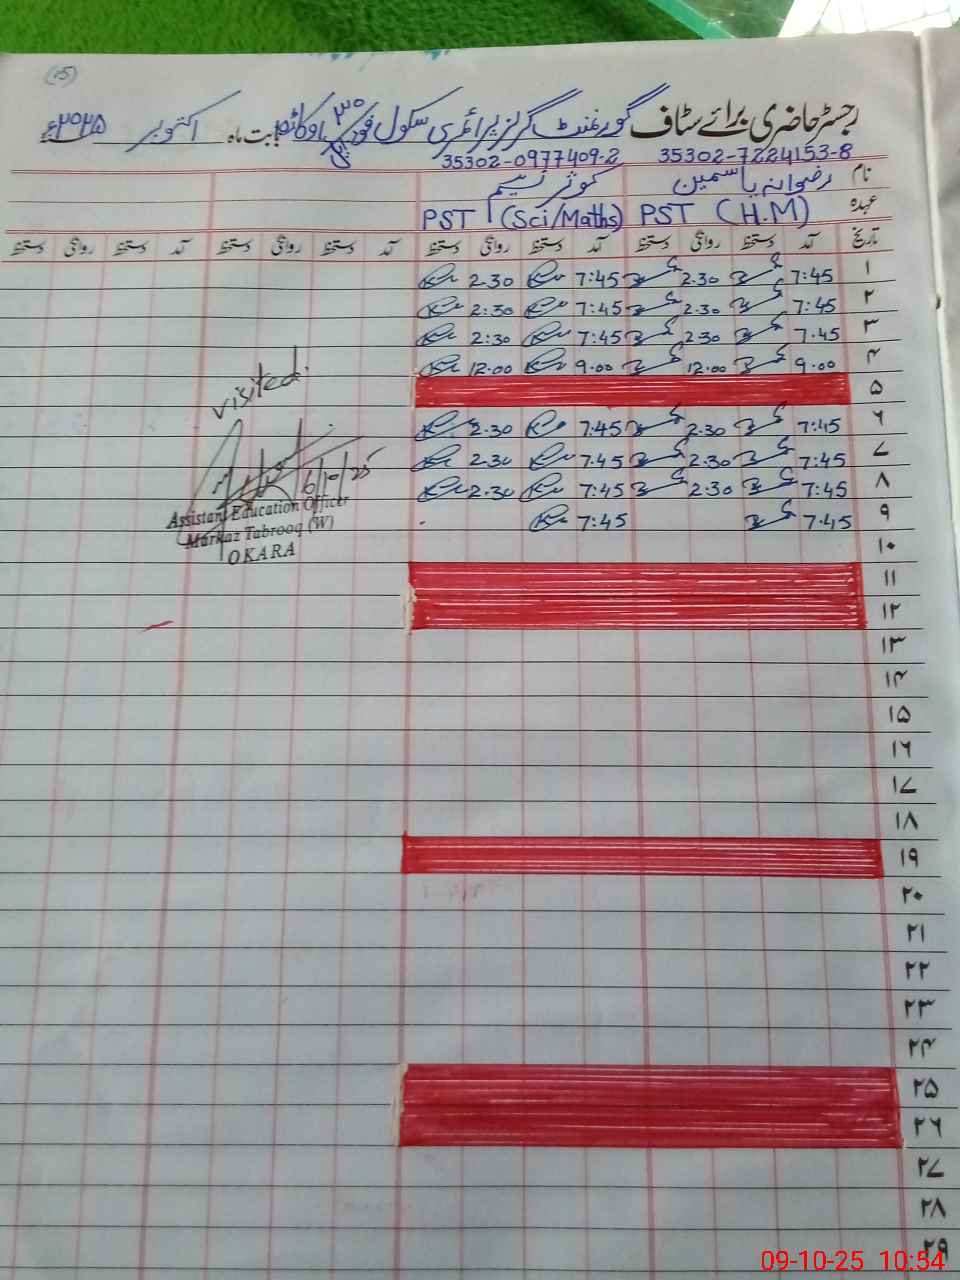 (15)
رجسٹر حاضری برائے سٹاف گورنمنٹ گرلز پرائمری سکول اوکاڑہ بابت ماہ اکتوبر ۲۰۲۵ء
35302-7224153-8 35302-0977409-2
نام رضوانہ یاسمین کوثر نسیم
عہدہ PST (H.M) PST (Sci/Maths)
تاریخ آمد دستخط روانگی دستخط آمد دستخط روانگی دستخط آمد دستخط روانگی دستخط آمد دستخط روانگی دستخط
۱ 7:45 2.30 7:45 2.30
۲ 7:45 2.30 7:45 2:30
۳ 7.45 2.30 7:45 2:30
۴ 9.00 12.00 9.00 12.00
۵
۶ 7:45 2.30 7:45 2.30
۷ 7:45 2.30 7:45 2.30
۸ 7:45 2.30 7:45 2.30
۹ 7.45 7:45
۱۰
۱۱
۱۲
۱۳
۱۴
۱۵
۱۶
۱۷
۱۸
۱۹
۲۰
۲۱
۲۲
۲۳
۲۴
۲۵
۲۶
۲۷
۲۸
۲۹
visited.
6/10/25
Assistant Education Officer
Markaz Tabrooq (W)
OKARA
09-10-25 10:54